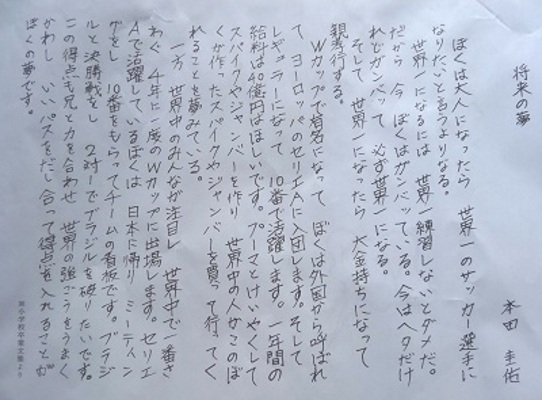 将来の夢
本田 圭佑
ぼくは大人になったら 世界一のサッカー選手に
なりたいと言うよりなる。
世界一になるには 世界一練習しないとダメだ。
だから 今 ぼくはガンバッている。今はヘタだけ
れどガンバッて 必ず世界一になる。
そして 世界一になったら 大金持ちになって
親孝行する。
Wカップで有名になって ぼくは外国から呼ばれ
て ヨーロッパのセリエAに入団します。そして
レギュラーになって 10番で活躍します。一年間の
給料は40億円はほしいです。プーマとけいやくして
スパイクやジャンバーを作り 世界中の人がこのぼ
くが作ったスパイクやジャンバーを買って行ってく
れることを夢みている。
一方 世界中のみんなが注目し 世界中で一番さ
わぐ 4年に一度のWカップに出場します。セリエ
Aで活躍しているぼくは 日本に帰り ミーティン
グをし 10番をもらってチームの看板です。ブラジ
ルと決勝戦をし 2対1でブラジルを破りたいです。
この得点も兄と力を合わせ 世界の強ごうをうまく
かわし いいパスをだし合って得点を入れることが
ぼくの夢です。
小学校卒業文集より